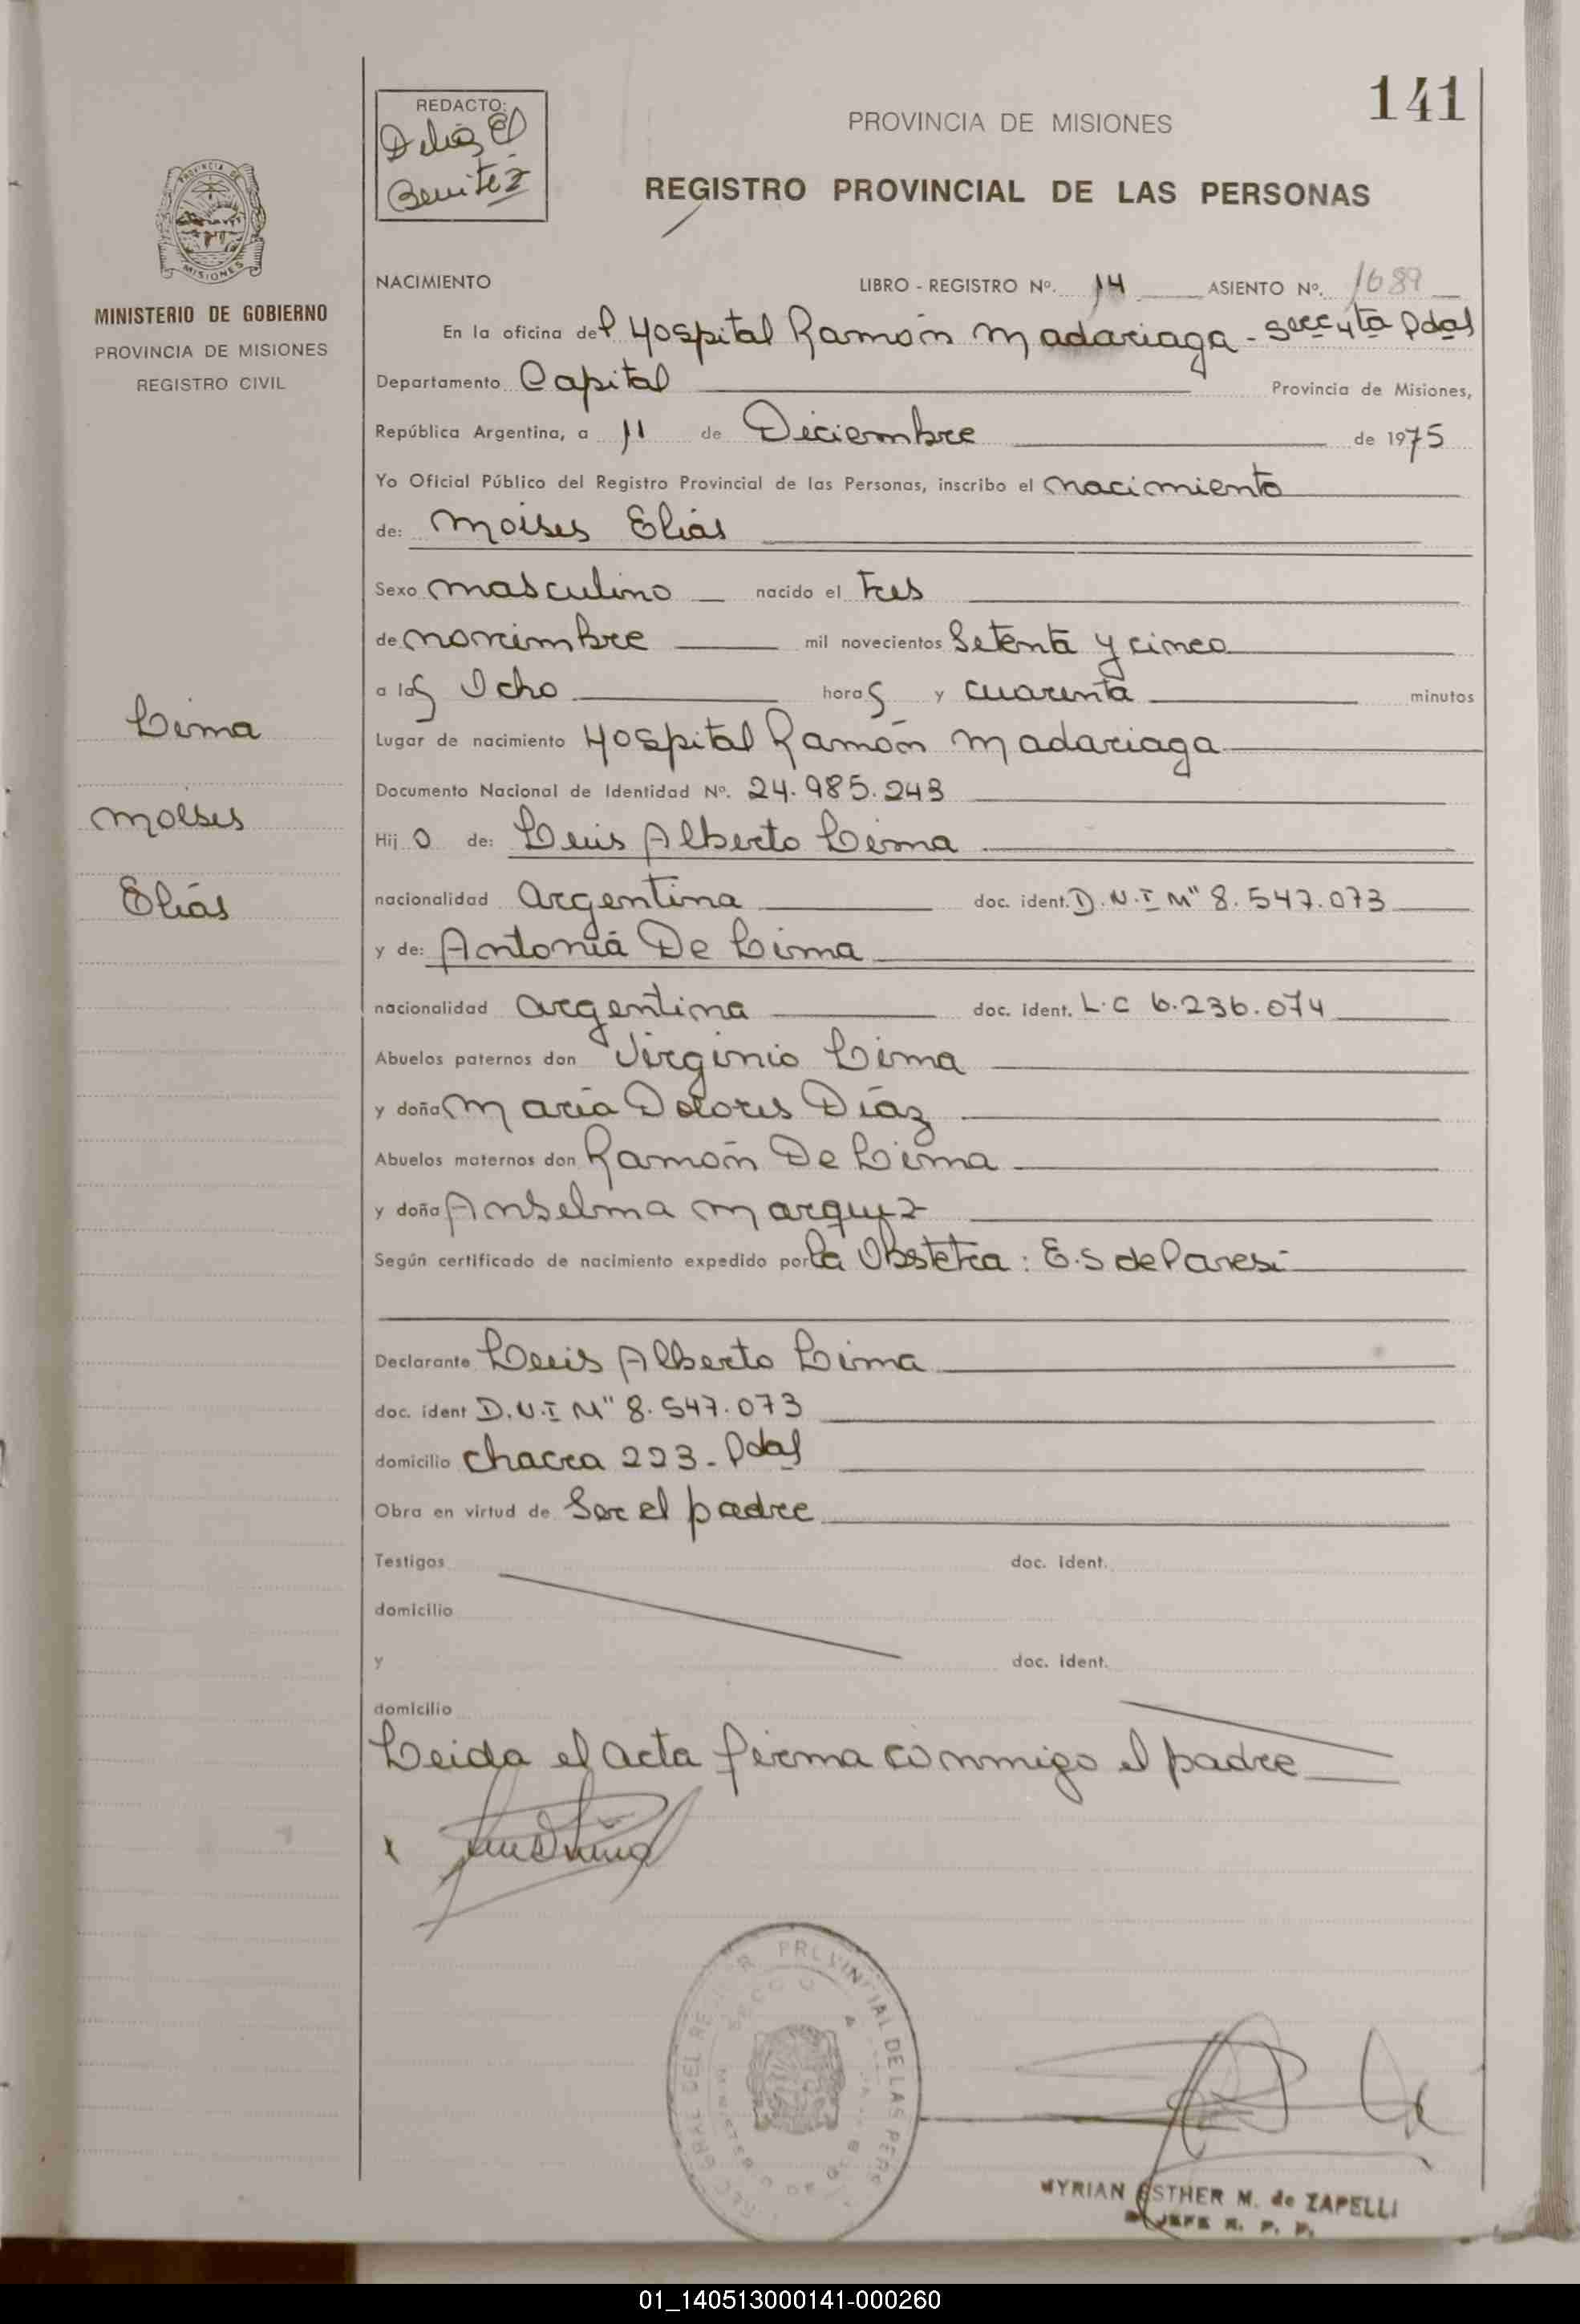 141
REDACTO:
Delia E
Benitez
PROVINCIA DE MISIONES
REGISTRO PROVINCIAL DE LAS PERSONAS
PROVINCIA DE
MISIONES
MINISTERIO DE GOBIERNO
PROVINCIA DE MISIONES
REGISTRO CIVIL
NACIMIENTO LIBRO - REGISTRO Nº. 14 ASIENTO Nº. 1689
En la oficina del Hospital Ramón Madariaga - Secc 4ta Pdas
Departamento Capital Provincia de Misiones,
República Argentina, a 11 de Diciembre de 1975
Yo Oficial Público del Registro Provincial de las Personas, inscribo el nacimiento
de: Moises Elias
Sexo masculino nacido el tres
de noviembre mil novecientos Setenta y cinco
a las Ocho horas y cuarenta minutos
Lugar de nacimiento Hospital Ramón Madariaga
Documento Nacional de Identidad Nº. 24.985.243
Hijo de: Luis Alberto Lima
nacionalidad Argentina doc. ident. D.N.I M" 8.547.073
y de: Antonia De Lima
nacionalidad Argentina doc. ident. L.C 6.236.074
Abuelos paternos don Virginio Lima
y doña Maria Dolores Díaz
Abuelos maternos don Ramón De Lima
y doña Anselma Marquez
Según certificado de nacimiento expedido por la Obstetra: E.S de Paresi
Declarante Luis Alberto Lima
doc. ident D.N.I M" 8.547.073
domicilio chacra 223 - Pdas
Obra en virtud de Ser el padre
Testigos doc. ident.
domicilio
y doc. ident.
domicilio
Leida el acta firma conmigo el padre
Lima
Moises
Elias
PROVINCIAL DE LAS PERS
MYRIAN ESTHER M. de ZAPELLI
JEFE R. P. P.
01_140513000141-000260